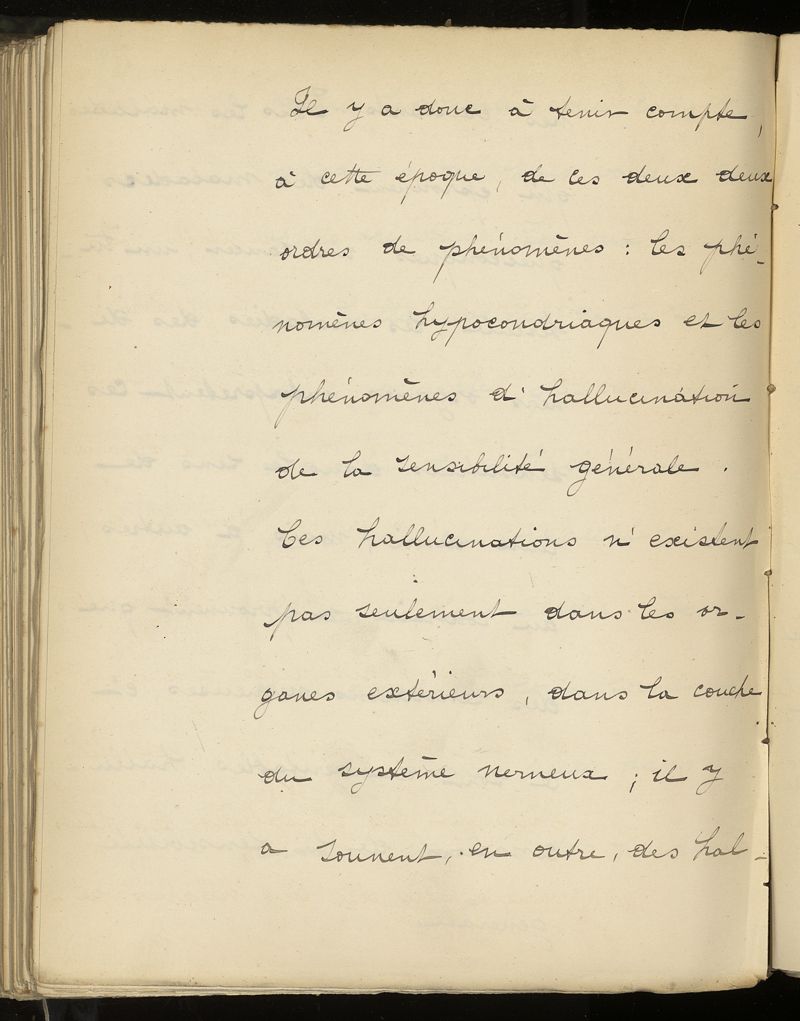 Il y a donc à tenir compte,
à cette époque, de ces deux deux
ordres de phénomènes : les phé-
nomènes hypocondriaques et les
phénomènes d'hallucination
de la sensibilité générale.
Ces hallucinations n'existent
pas seulement dans les or-
ganes extérieurs, dans la couche
du système nerveux ; il y
a souvent, en outre, des hal-